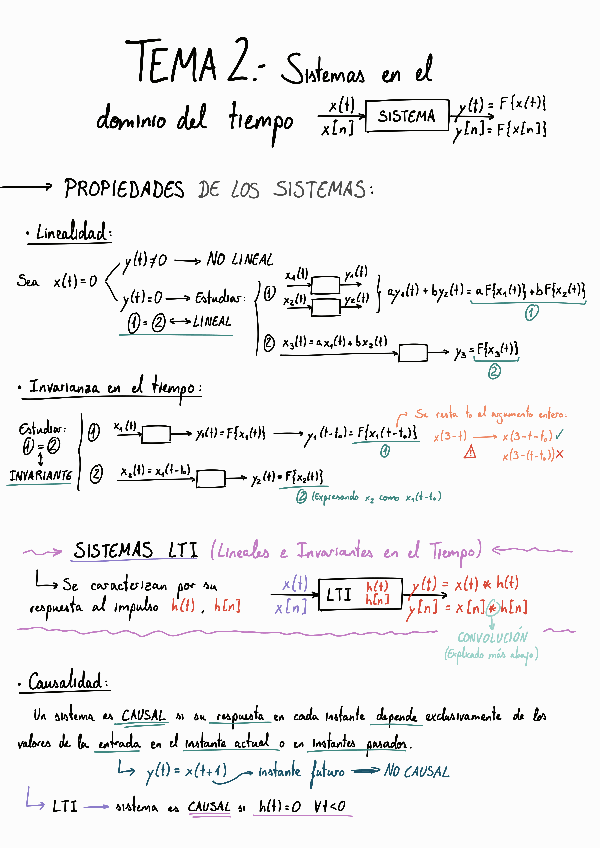 TEMA 2.- Sistemas en el
dominio del tiempo
x(t)
x[n]
SISTEMA
y(t) = F{x(t)}
y[n] = F{x[n]}
→ PROPIEDADES DE LOS SISTEMAS:
· Linealidad:
Sea x(t)=0
y(t)≠0 → NO LINEAL
y(t)=0 → Estudiar:
①=② ↔ LINEAL
① x₁(t) y₁(t)
x₂(t) y₂(t)
ay₁(t) + by₂(t) = aF{x₁(t)} + bF{x₂(t)}
①
② x₃(t) = ax₁(t) + bx₂(t) → y₃ = F{x₃(t)}
②
· Invarianza en el tiempo:
Estudiar:
①=②
↕
INVARIANTE
① x₁(t) → y₁(t) = F{x₁(t)} → y₁(t-t₀) = F{x₁(t-t₀)}
①
Se resta t₀ al argumento entero.
x(3-t) → x(3-t-t₀) ✓
⚠ x(3-(t-t₀)) ✗
② x₂(t) = x₁(t-t₀) → y₂(t) = F{x₂(t)}
② (Expresando x₂ como x₁(t-t₀)
SISTEMAS LTI (Lineales e Invariantes en el Tiempo)
↳ Se caracterizan por su
respuesta al impulso h(t), h[n]
x(t)
x[n]
LTI h(t)
h[n]
y(t) = x(t) * h(t)
y[n] = x[n] * h[n]
CONVOLUCIÓN
(Explicado más abajo)
· Causalidad:
Un sistema es CAUSAL si su respuesta en cada instante depende exclusivamente de los
valores de la entrada en el instante actual o en instantes pasados.
↳ y(t) = x(t+1) → instante futuro → NO CAUSAL
↳ LTI → sistema es CAUSAL si h(t)=0 ∀t<0